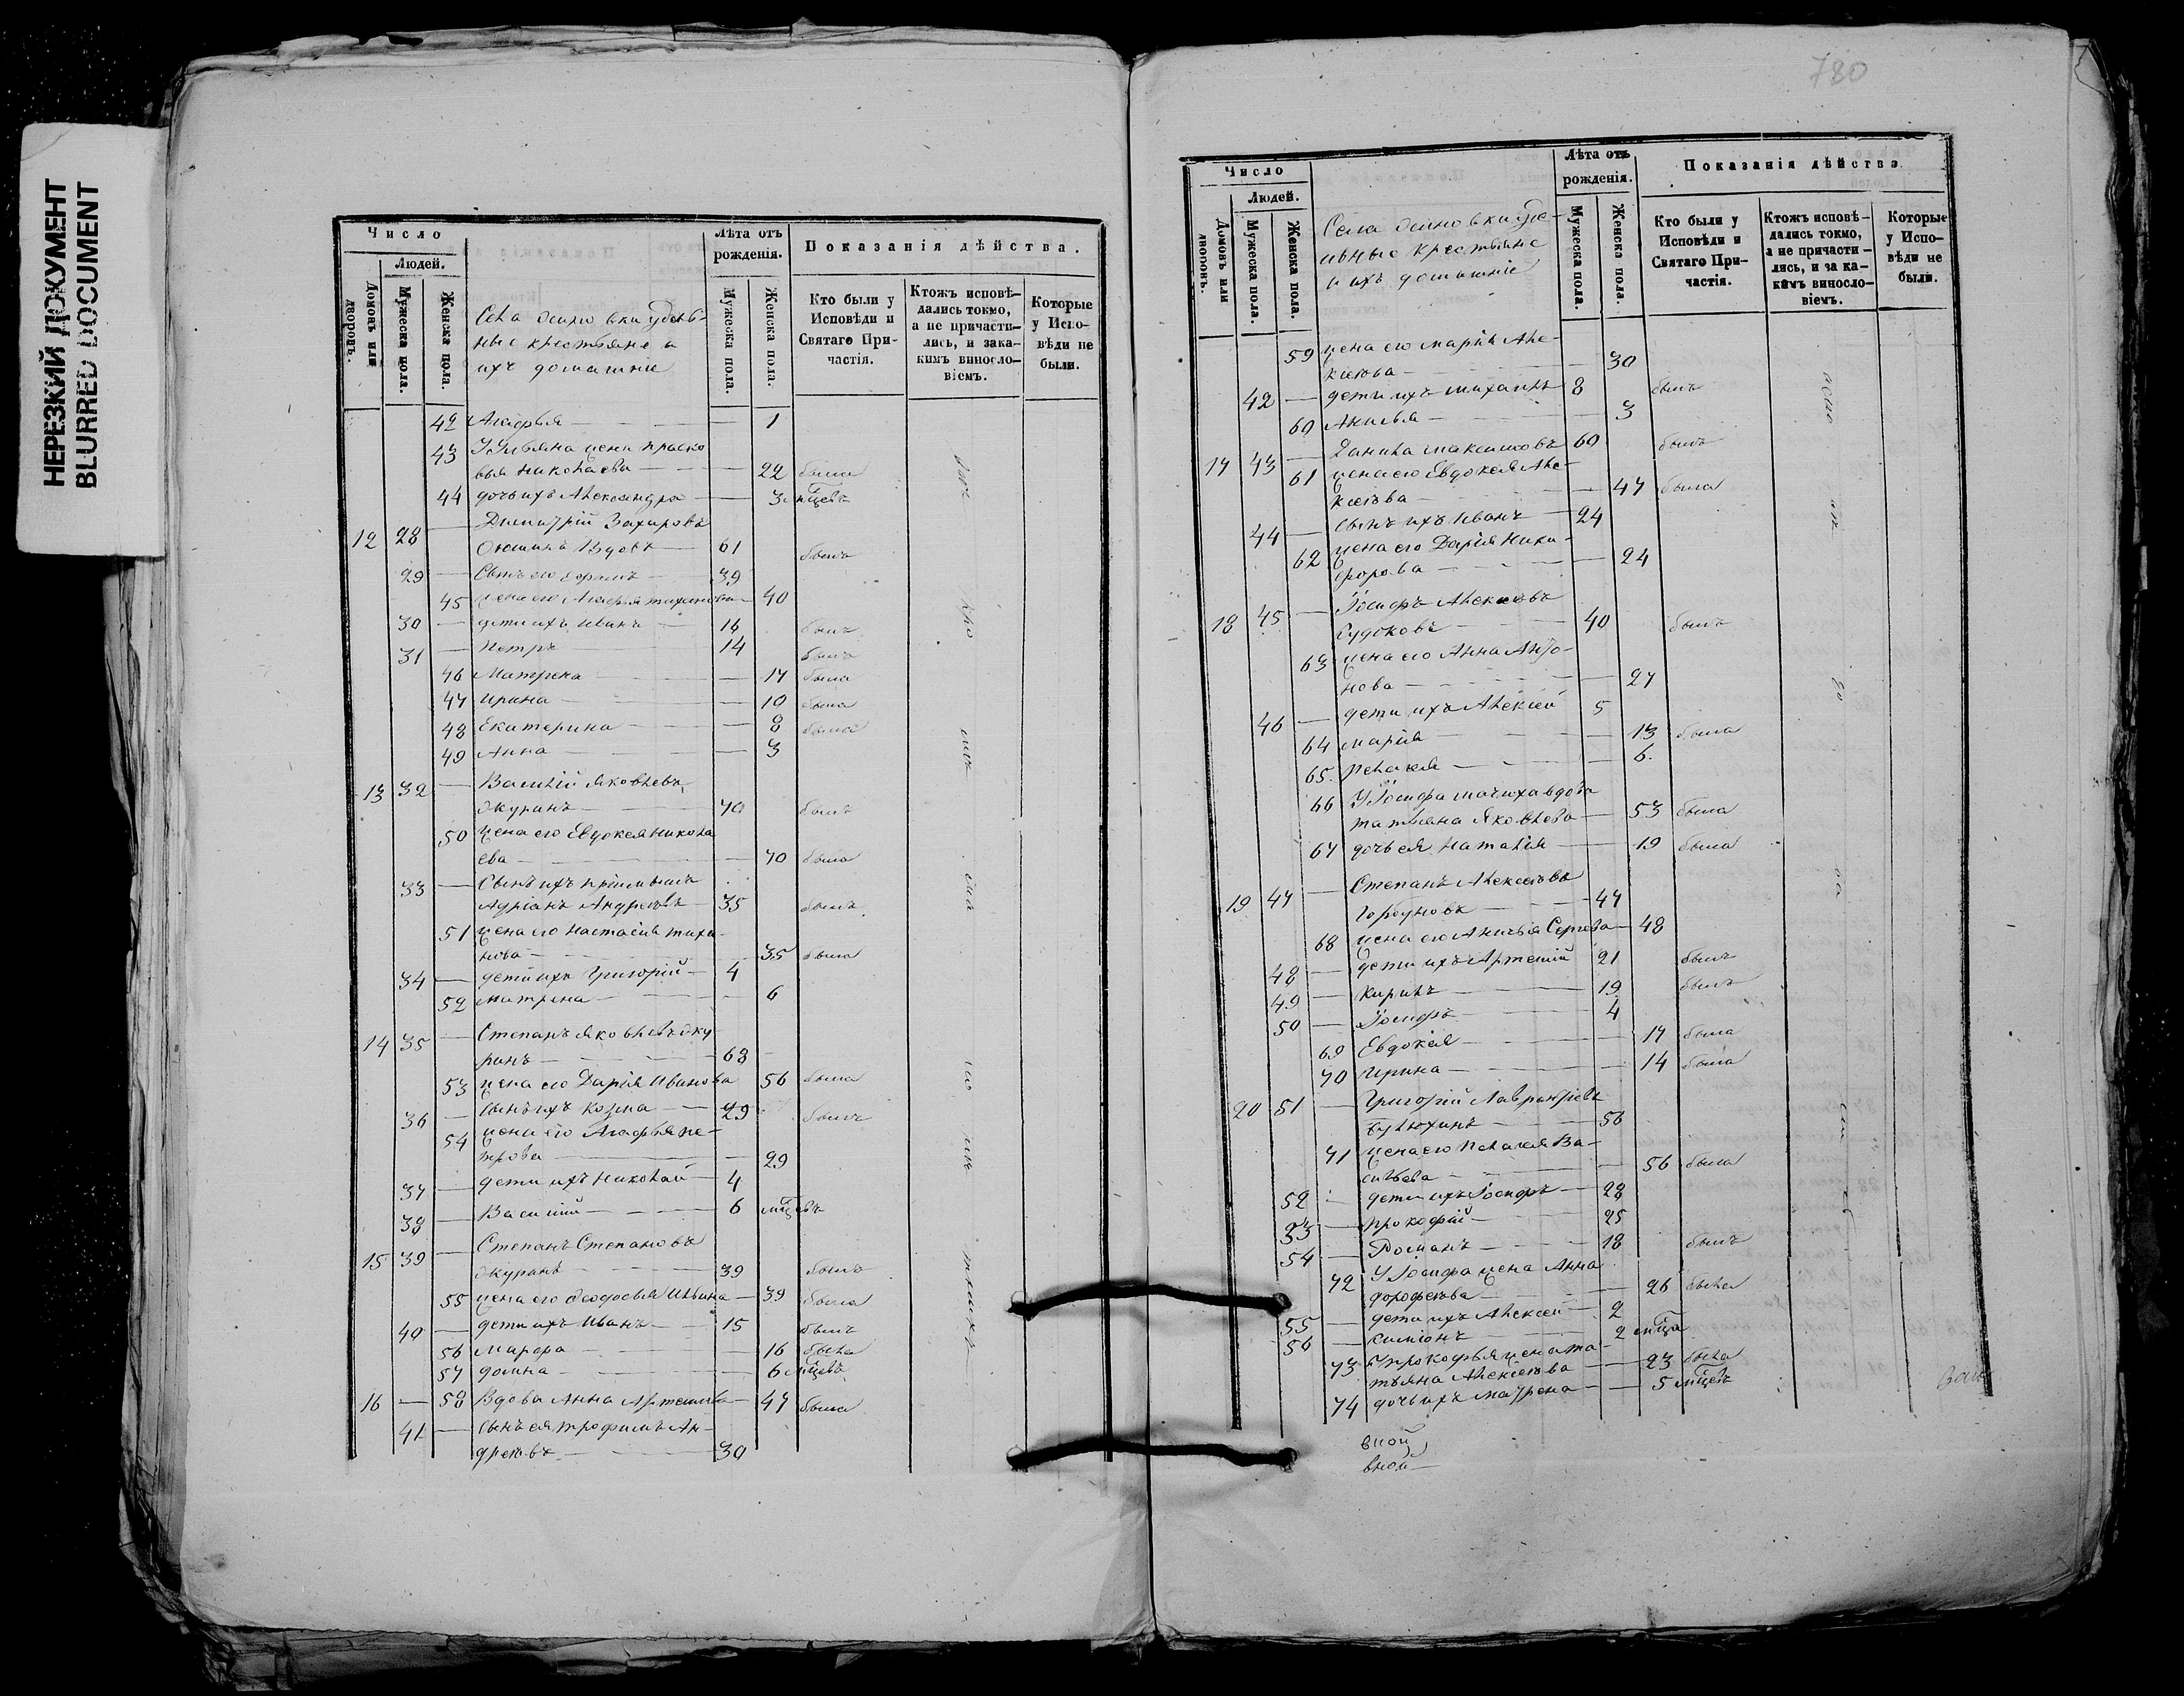 НЕРЕЗКИЙ ДОКУМЕНТ
BLURRED DOCUMENT
Число
Людей.
Домовъ или дворовъ.
Мужеска пола.
Женска пола.
Села Осиновки удель-
ные крестьяне и
ихъ домашніе
Лѣта отъ рожденія.
Мужеска пола.
Женска пола.
Показанія дѣйства.
Кто были у Исповѣди и Святаго При-частія.
Ктожъ исповѣ-дались токмо, а не причасти-лись, и зака-кимъ виносло-віемъ.
Которые у Испо-вѣди не были.
42 Агафья — 1
43 У Ульяна жена Праско
вья Николаева — 22 была
44 дочь ихъ Александра — 3 мцевъ
12 28 — Димитрій Захаровъ
вдовъ — 61 былъ
29 — Сынъ его Ефимъ — 39
45 жена его Агафья Тихонова — 40
30 — дети ихъ Иванъ — 16 былъ
31 — Петръ — 14 былъ
46 Матрена — 17 была
47 Ирина — 10 была
48 Екатерина — 8 была
49 Анна — 3
13 32 — Василій Яковлевъ
Журинъ — 70 былъ
50 жена его Евдокея Никола
ева — 70 была
33 — Сынъ ихъ приимышъ
Адріанъ Андреевъ — 35 былъ
51 жена его Настасія Тихо-
нова — 35 была
34 — дети ихъ Григорій — 4
52 Матрена — 6
14 35 — Степанъ Яковлевъ Жу
ринъ — 68
53 жена его Дарія Иванова 56 была
36 — Сынъ ихъ Козма — 29 былъ
54 жена его Агафья Пе-
трова — 29
37 — дети ихъ Николай — 4
38 — Василій — 6 мцевъ
15 39 — Степанъ Степановъ
Журинъ — 39 былъ
55 жена его Феодосья Ильина — 39 была
40 — дети ихъ Иванъ — 15 былъ
56 Марфа — 16 была
57 Домна — 6 мцевъ
16 — 58 Вдова Анна Артемова — 47 была
41 — Сынъ ея Трофимъ Ан-
дреевъ — 30
780
Число
Людей.
Домовъ или дворовъ.
Мужеска пола.
Женска пола.
Села Осиновки Уде-
льные крестьяне
и ихъ домашніе
Лѣта отъ рожденія.
Мужеска пола.
Женска пола.
Показанія дѣйства
Кто были у Исповѣди и Святаго При-частія.
Ктожъ исповѣ-дались токмо, а не причасти-лись, и за ка-кимъ виносло-віемъ.
Которые у Испо-вѣди не были.
59 жена его Марія Але-
ксеева — 30
42 — дети ихъ Михаилъ 8 былъ
60 Акилина — 3
17 43 — Данила Максимовъ 60 былъ
61 жена его Евдокея Але-
ксеева — 47 была
44 — Сынъ ихъ Иванъ — 24
62 жена его Дарія Ники-
форова — 24
18 45 — Іосифъ Алексеевъ
Судоковъ — 40 былъ
63 жена его Анна Анто-
нова — 27
46 — дети ихъ Алексей 5
64 Марія — 13 была
65. Пелагея — 6.
66 У Іосифа мачиха вдова
Татьяна Яковлева — 53 была
67 дочь ея Наталія — 19 была
19 47 — Степанъ Алексеевъ
Горбуновъ — 47
68 жена его Сергеева — 48
48 — дети ихъ Артемій 21 былъ
49 — Кирилъ — 19 былъ
50 — Іосифъ — 4
69 Евдокея — 17 была
70 Ирина — 14 была
20 51 — Григорій Лаврентьевъ
— 56
71 жена его Пелагея Ва-
сильева — 56 была
52 — дети ихъ Іосифъ — 28
53 — Прокофій — 25
54 — Романъ — 18 былъ
72 У Іосифа жена Анна
Дорофеева — 26 была
55 — дети ихъ Алексей — 2
56 — Симіонъ — 2 мца
73 У Прокофья жена Та-
тьяна Алексеева — 23 была
74 дочь ихъ Матрена — 5 мцевъ